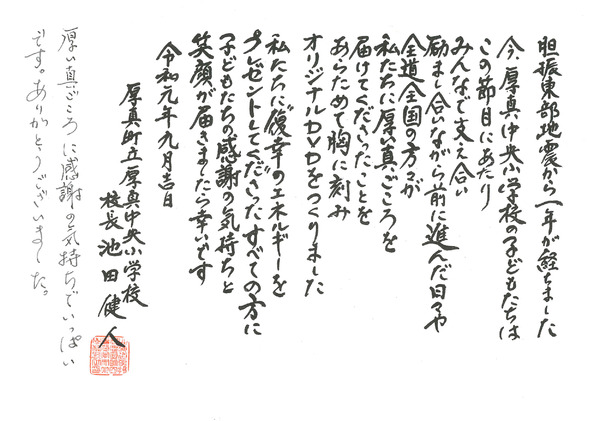 胆振東部地震から一年が経ちました
今、厚真中央小学校の子どもたちは
この節目にあたり
みんなで支え合い
励まし合いながら前に進んだ日々や
全道全国の方々が
私たちに厚い真ごころを
届けてくださったことを
あらためて胸に刻み
オリジナルDVDをつくりました
私たちに復幸のエネルギーを
プレゼントしてくださったすべての方に
子どもたちの感謝の気持ちと
笑顔が届きましたら幸いです
令和元年九月吉日
厚真町立厚真中央小学校
校長 池田健人
厚い真ごころに感謝の気持ちでいっぱい
です。ありがとうございました。